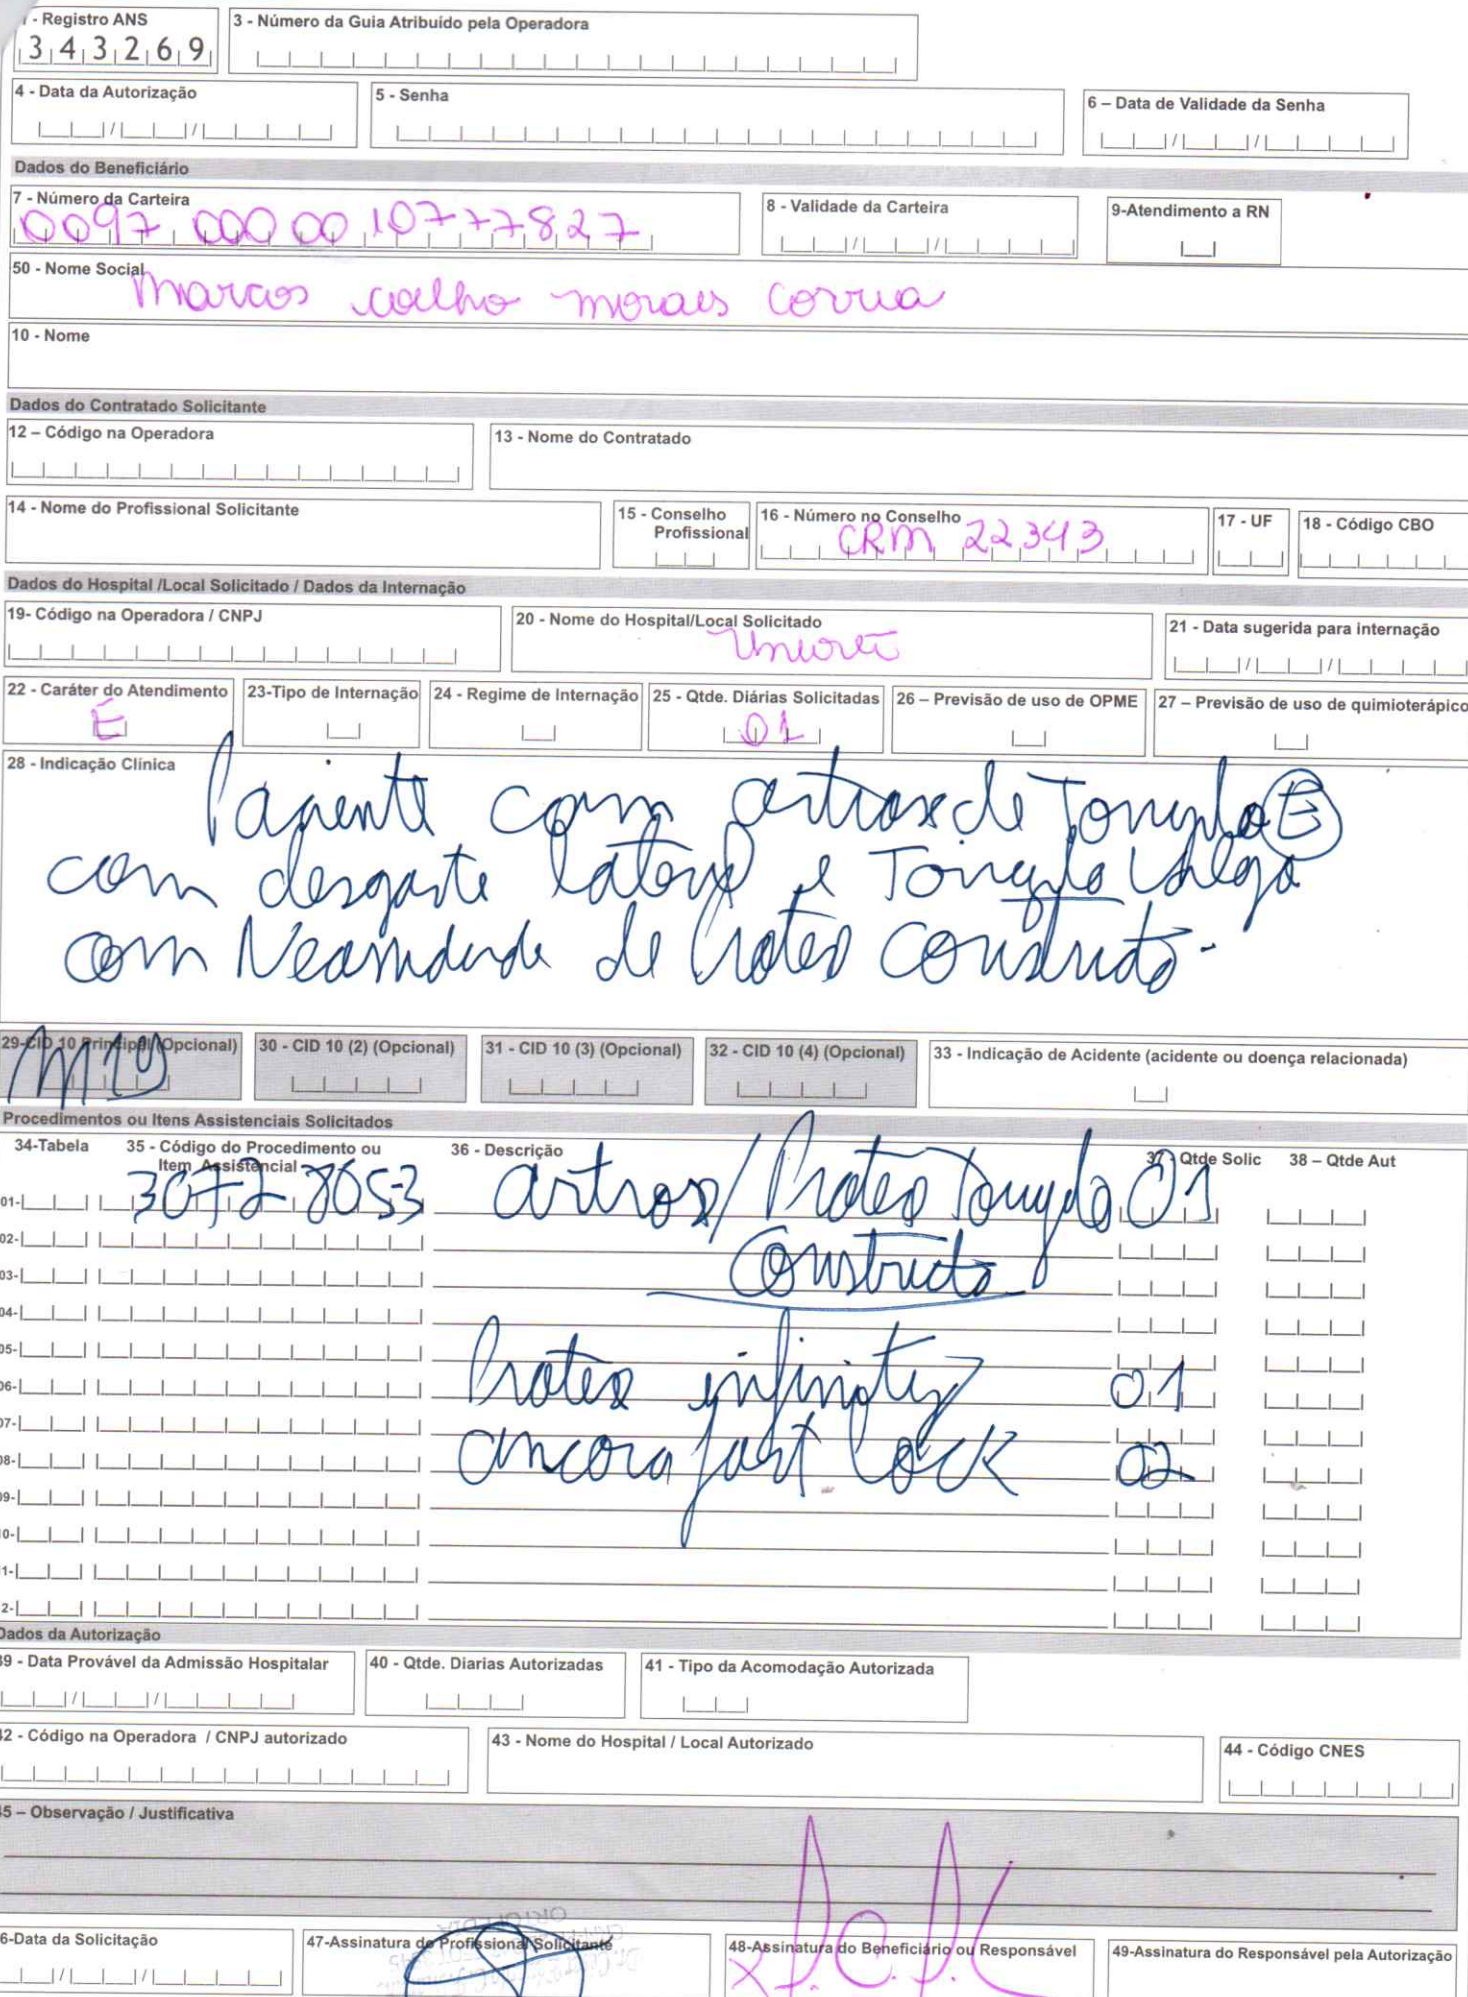 - Registro ANS
343269
3 - Número da Guia Atribuído pela Operadora
4 - Data da Autorização
5 - Senha
6 – Data de Validade da Senha
Dados do Beneficiário
7 - Número da Carteira
0097 000 00 10777827
8 - Validade da Carteira
9-Atendimento a RN
50 - Nome Social
Marcos coelho moraes correa
10 - Nome
Dados do Contratado Solicitante
12 – Código na Operadora
13 - Nome do Contratado
14 - Nome do Profissional Solicitante
15 - Conselho Profissional
16 - Número no Conselho
CRM 22343
17 - UF
18 - Código CBO
Dados do Hospital /Local Solicitado / Dados da Internação
19- Código na Operadora / CNPJ
20 - Nome do Hospital/Local Solicitado
21 - Data sugerida para internação
22 - Caráter do Atendimento
E
23-Tipo de Internação
24 - Regime de Internação
25 - Qtde. Diárias Solicitadas
01
26 – Previsão de uso de OPME
27 – Previsão de uso de quimioterápico
28 - Indicação Clínica
Paciente com artrose de Tornozelo E
com desgaste lateral e Tornozelo Valgo
com Necessidade de Protese Constructo.
29-CID 10 Principal (Opcional)
M19
30 - CID 10 (2) (Opcional)
31 - CID 10 (3) (Opcional)
32 - CID 10 (4) (Opcional)
33 - Indicação de Acidente (acidente ou doença relacionada)
Procedimentos ou Itens Assistenciais Solicitados
34-Tabela
35 - Código do Procedimento ou Item Assistencial
36 - Descrição
37 - Qtde Solic
38 – Qtde Aut
01- 30728053 artrose/Protese Tornozelo 01
02-
Constructo
03-
04-
05-
06- Protese infinity 01
07-
08- ancora fast lock 02
09-
0-
1-
2-
Dados da Autorização
39 - Data Provável da Admissão Hospitalar
40 - Qtde. Diarias Autorizadas
41 - Tipo da Acomodação Autorizada
42 - Código na Operadora / CNPJ autorizado
43 - Nome do Hospital / Local Autorizado
44 - Código CNES
45 – Observação / Justificativa
6-Data da Solicitação
47-Assinatura do Profissional Solicitante
48-Assinatura do Beneficiário ou Responsável
49-Assinatura do Responsável pela Autorização